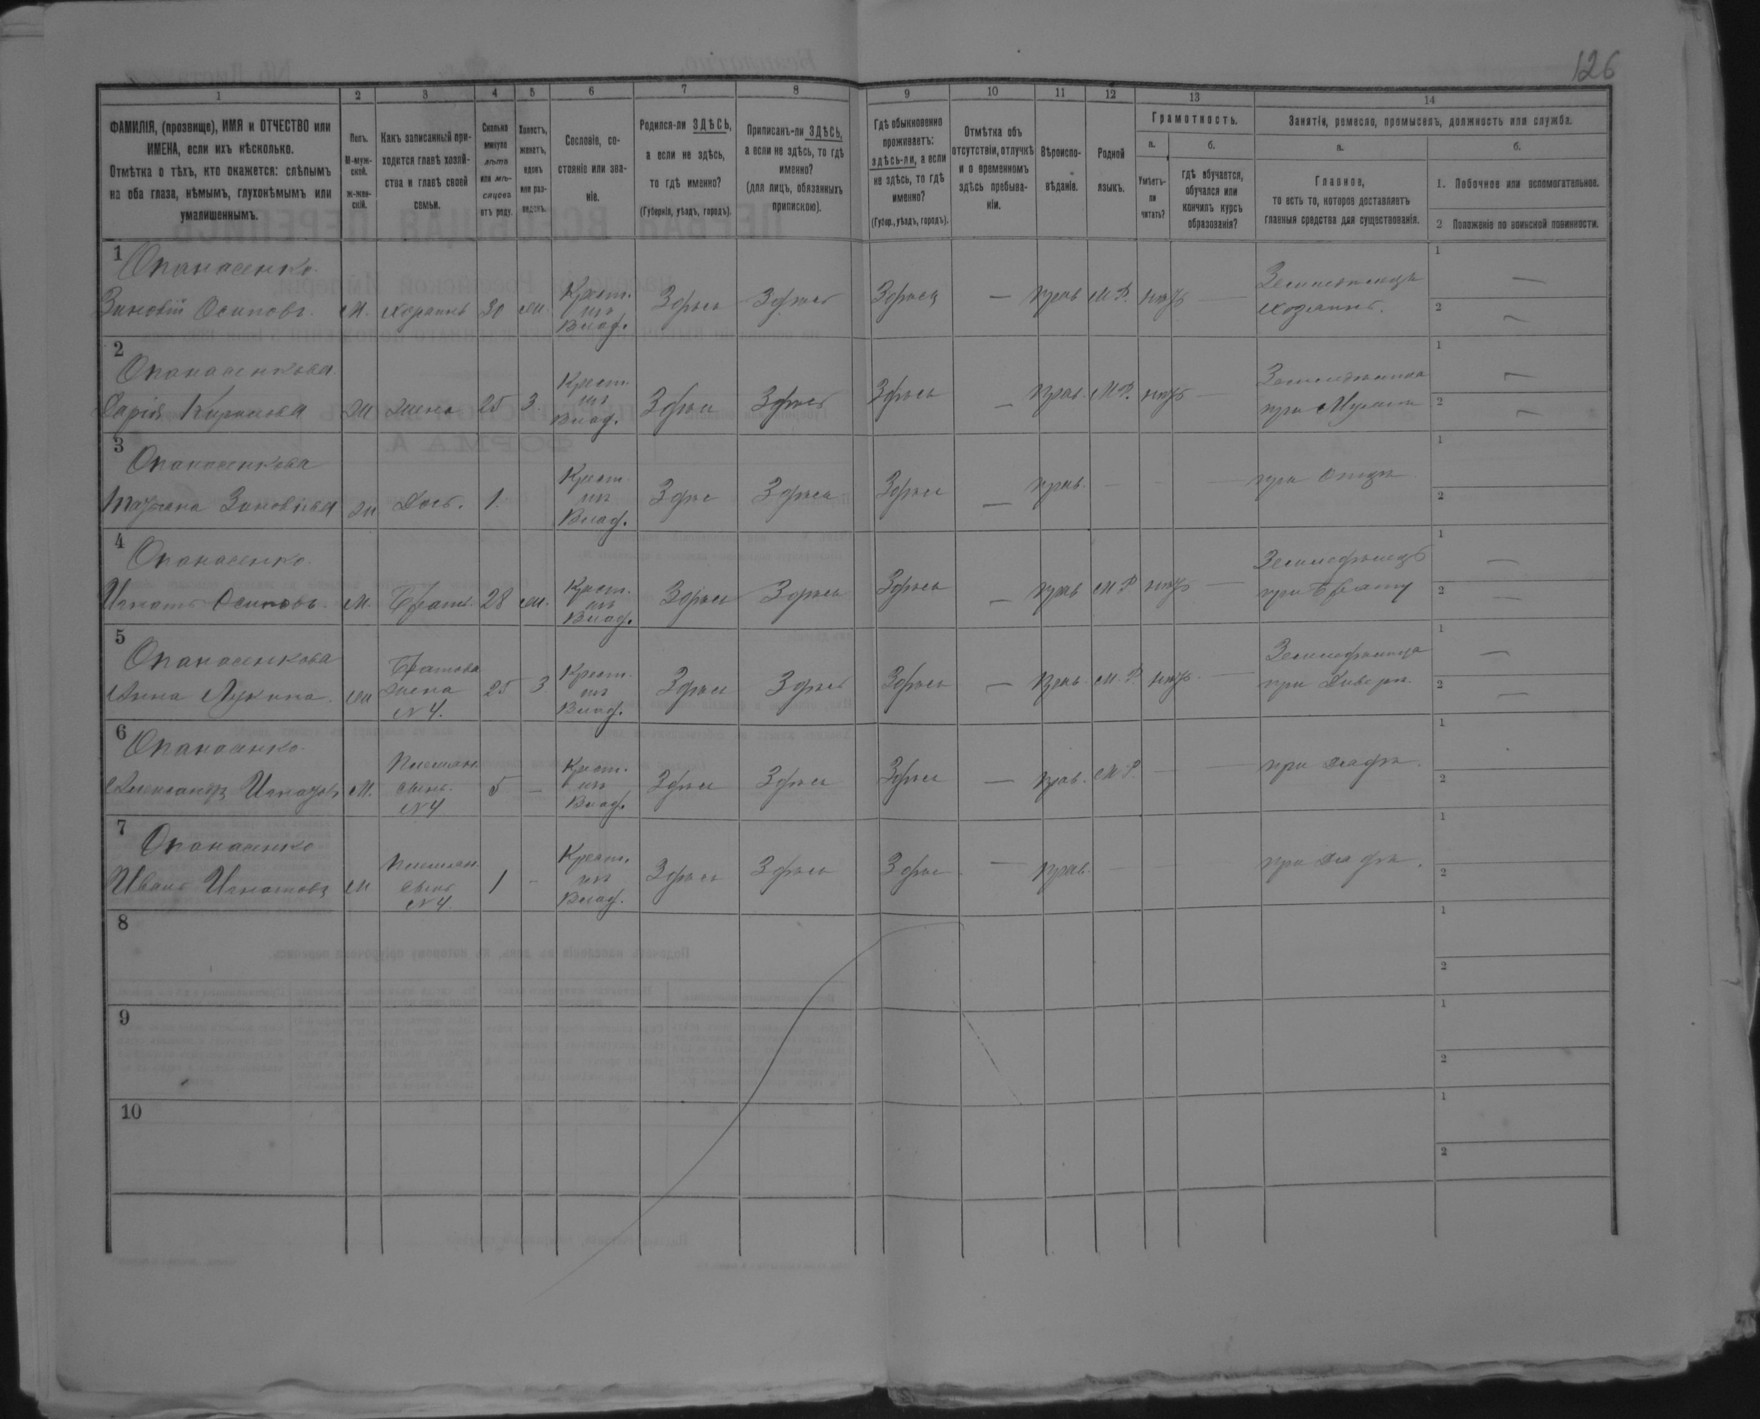 126
1 2 3 4 5 6 7 8 9 10 11 12 13 14
ФАМИЛІЯ, (прозвище), ИМЯ и ОТЧЕСТВО или
ИМЕНА, если ихъ нѣсколько.
Отмѣтка о тѣхъ, кто окажется: слѣпымъ
на оба глаза, нѣмымъ, глухонѣмымъ или
умалишеннымъ.
Полъ.
М-муж-
ской.
ж-жен-
скій.
Какъ записанный при-
ходится главѣ хозяй-
ства и главѣ своей
семьи.
Сколько
минуло
лѣтъ
или мѣ-
сяцевъ
отъ роду.
Холостъ,
женатъ,
вдовъ
или раз-
веденъ.
Сословіе, со-
стояніе или зва-
ніе.
Родился-ли ЗДѢСЬ,
а если не здѣсь,
то гдѣ именно?
(Губернія, уѣздъ, городъ).
Приписанъ-ли ЗДѢСЬ,
а если не здѣсь, то гдѣ
именно?
(для лицъ, обязанныхъ
припискою).
Гдѣ обыкновенно
проживаетъ:
здѣсь-ли, а если
не здѣсь, то гдѣ
именно?
(Губер., уѣздъ, городъ).
Отмѣтка объ
отсутствіи, отлучкѣ
и о временномъ
здѣсь пребыва-
ніи.
Вѣроиспо-
вѣданіе.
Родной
языкъ.
Грамотность.
а.
Умѣетъ-
ли
читать?
б.
гдѣ обучается,
обучался или
кончилъ курсъ
образованія?
Занятіе, ремесло, промыселъ, должность или служба.
а.
Главное,
то есть то, которое доставляетъ
главныя средства для существованія.
б.
1. Побочное или вспомогательное.
2 Положеніе по воинской повинности.
1
Опанасенко
Зиновій Осиповъ. М. хозяинъ 30 ж. Крест. изъ Влад. Здѣсь Здѣсь Здѣсь — прав. М.Р. нѣтъ — Земледѣлецъ хозяинъ. 1 — 2 —
2
Опанасенкова
Дарія Кирилова ж жена 25 З Крест. изъ Влад. Здѣсь Здѣсь Здѣсь — прав. М.Р. нѣтъ — при Мужѣ 1 — 2 —
3
Опанасенкова
Татяна Зиновіева ж Дочь. 1. Крест. изъ Влад. Здѣсь Здѣсь Здѣсь — прав. — — — при Отцѣ 1 2
4
Опанасенко
Игнатъ Осиповъ. М. Братъ. 28 ж. Крест. изъ Влад. Здѣсь Здѣсь Здѣсь — прав М Р нѣтъ — Земледѣлецъ при Брату 1 — 2 —
5
Опанасенкова
Анна Лукина. ж Братова жена N 4. 25 З Крест. изъ Влад. Здѣсь Здѣсь Здѣсь — прав. М.Р. нѣтъ. — при 1 — 2 —
6
Опанасенко
Александръ Игнатовъ М. сынъ. N 4 5 — Крест. изъ Влад. Здѣсь Здѣсь Здѣсь — прав. М.Р. — — при 1 2
7
Опанасенко
Иванъ Игнатовъ М сынъ N 4. 1 — Крест. изъ Влад. Здѣсь Здѣсь Здѣсь — прав. — — — при 1 2
8 1 2
9 1 2
10 1 2